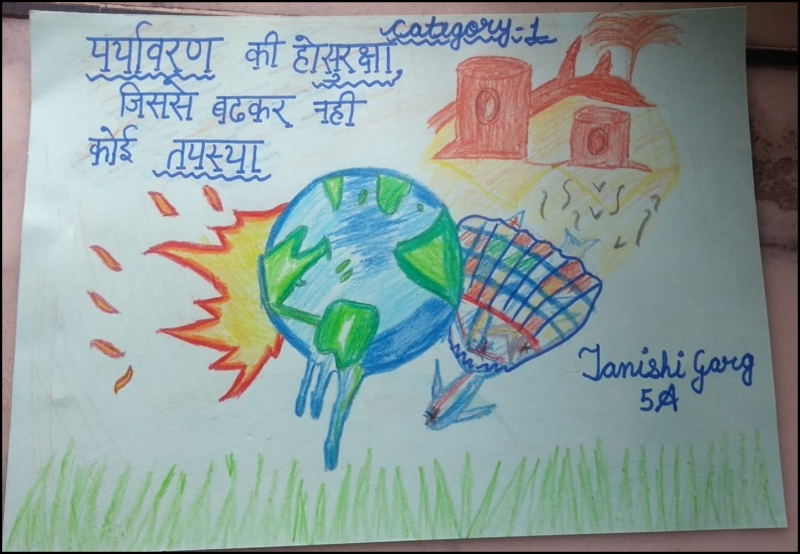 category-1
पर्यावरण की होसुरक्षा,
जिससे बढकर नही
कोई तपस्या
Tanishi Garg
5A